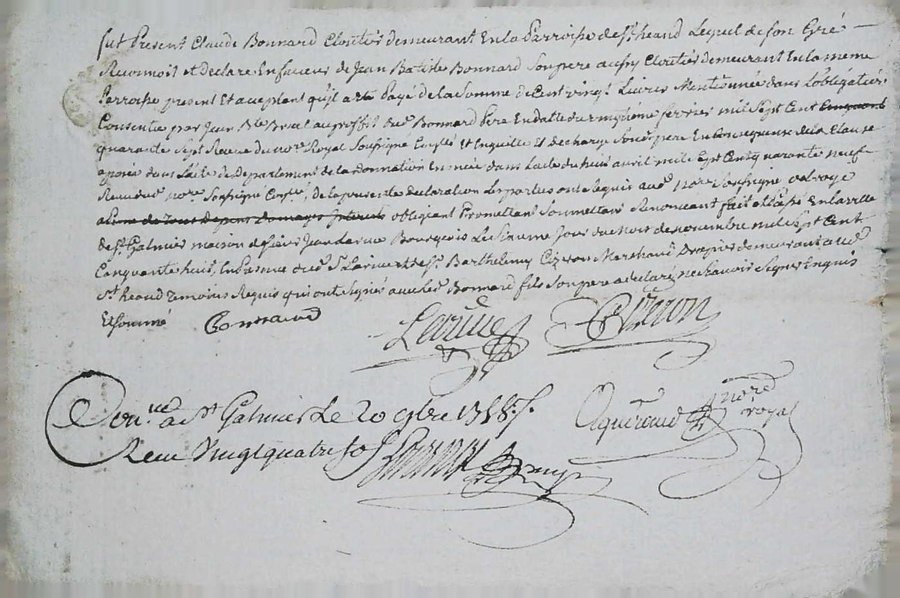 fut Present Claude Bonnard Cloutier demeurant En la Parroisse de St heand Lequel de son Gré
Reconnoit et declare En faveur de Jean Batiste Bonnard Son pere aussy Cloutier demeurant En la meme
Parroisse present Et aceptant qu'il a eté Payé de la Somme de Cent vingt Livres Mentionnée dans L'obligation
Consentie par Jean Bte au proffit dud. Bonnard Pere En datte du fevrier mil Sept Cent Cinquante
quarante Sept Receue du nore Royal Soussigné Et En quitte Et decharge Sond. pere En Consequence de la Clause
aposée dans L'acte de departement de la donnation En née dans L'acte du huit avril mil Sept Cent quarante neuf
nore Soussigné de la presente declaration Les parties ont Requis aud. nore Soussigné octroyé
a peine de tous depens domages interets obligeant Promettant Soumettant Renonçant fait et passé En la ville
de St Galmier maison de Sieur Jean Larue Bourgeois Le Jour du mois de novembre mil Sept Cent
Cinquante huit, En presence dud. Sr Larue et de Sr Barthelemy Marchand Drapier demeurant aud.
St heand temoins Requis qui ont Signés avec led. Bonnard fils Son pere a declaré ne Sçavoir Signer Enquis
Et Sommé Bonnard
Larue
nore royal
Con.lé a St Galmier Le 20 9bre 1758
Receu Vingt quatre sols